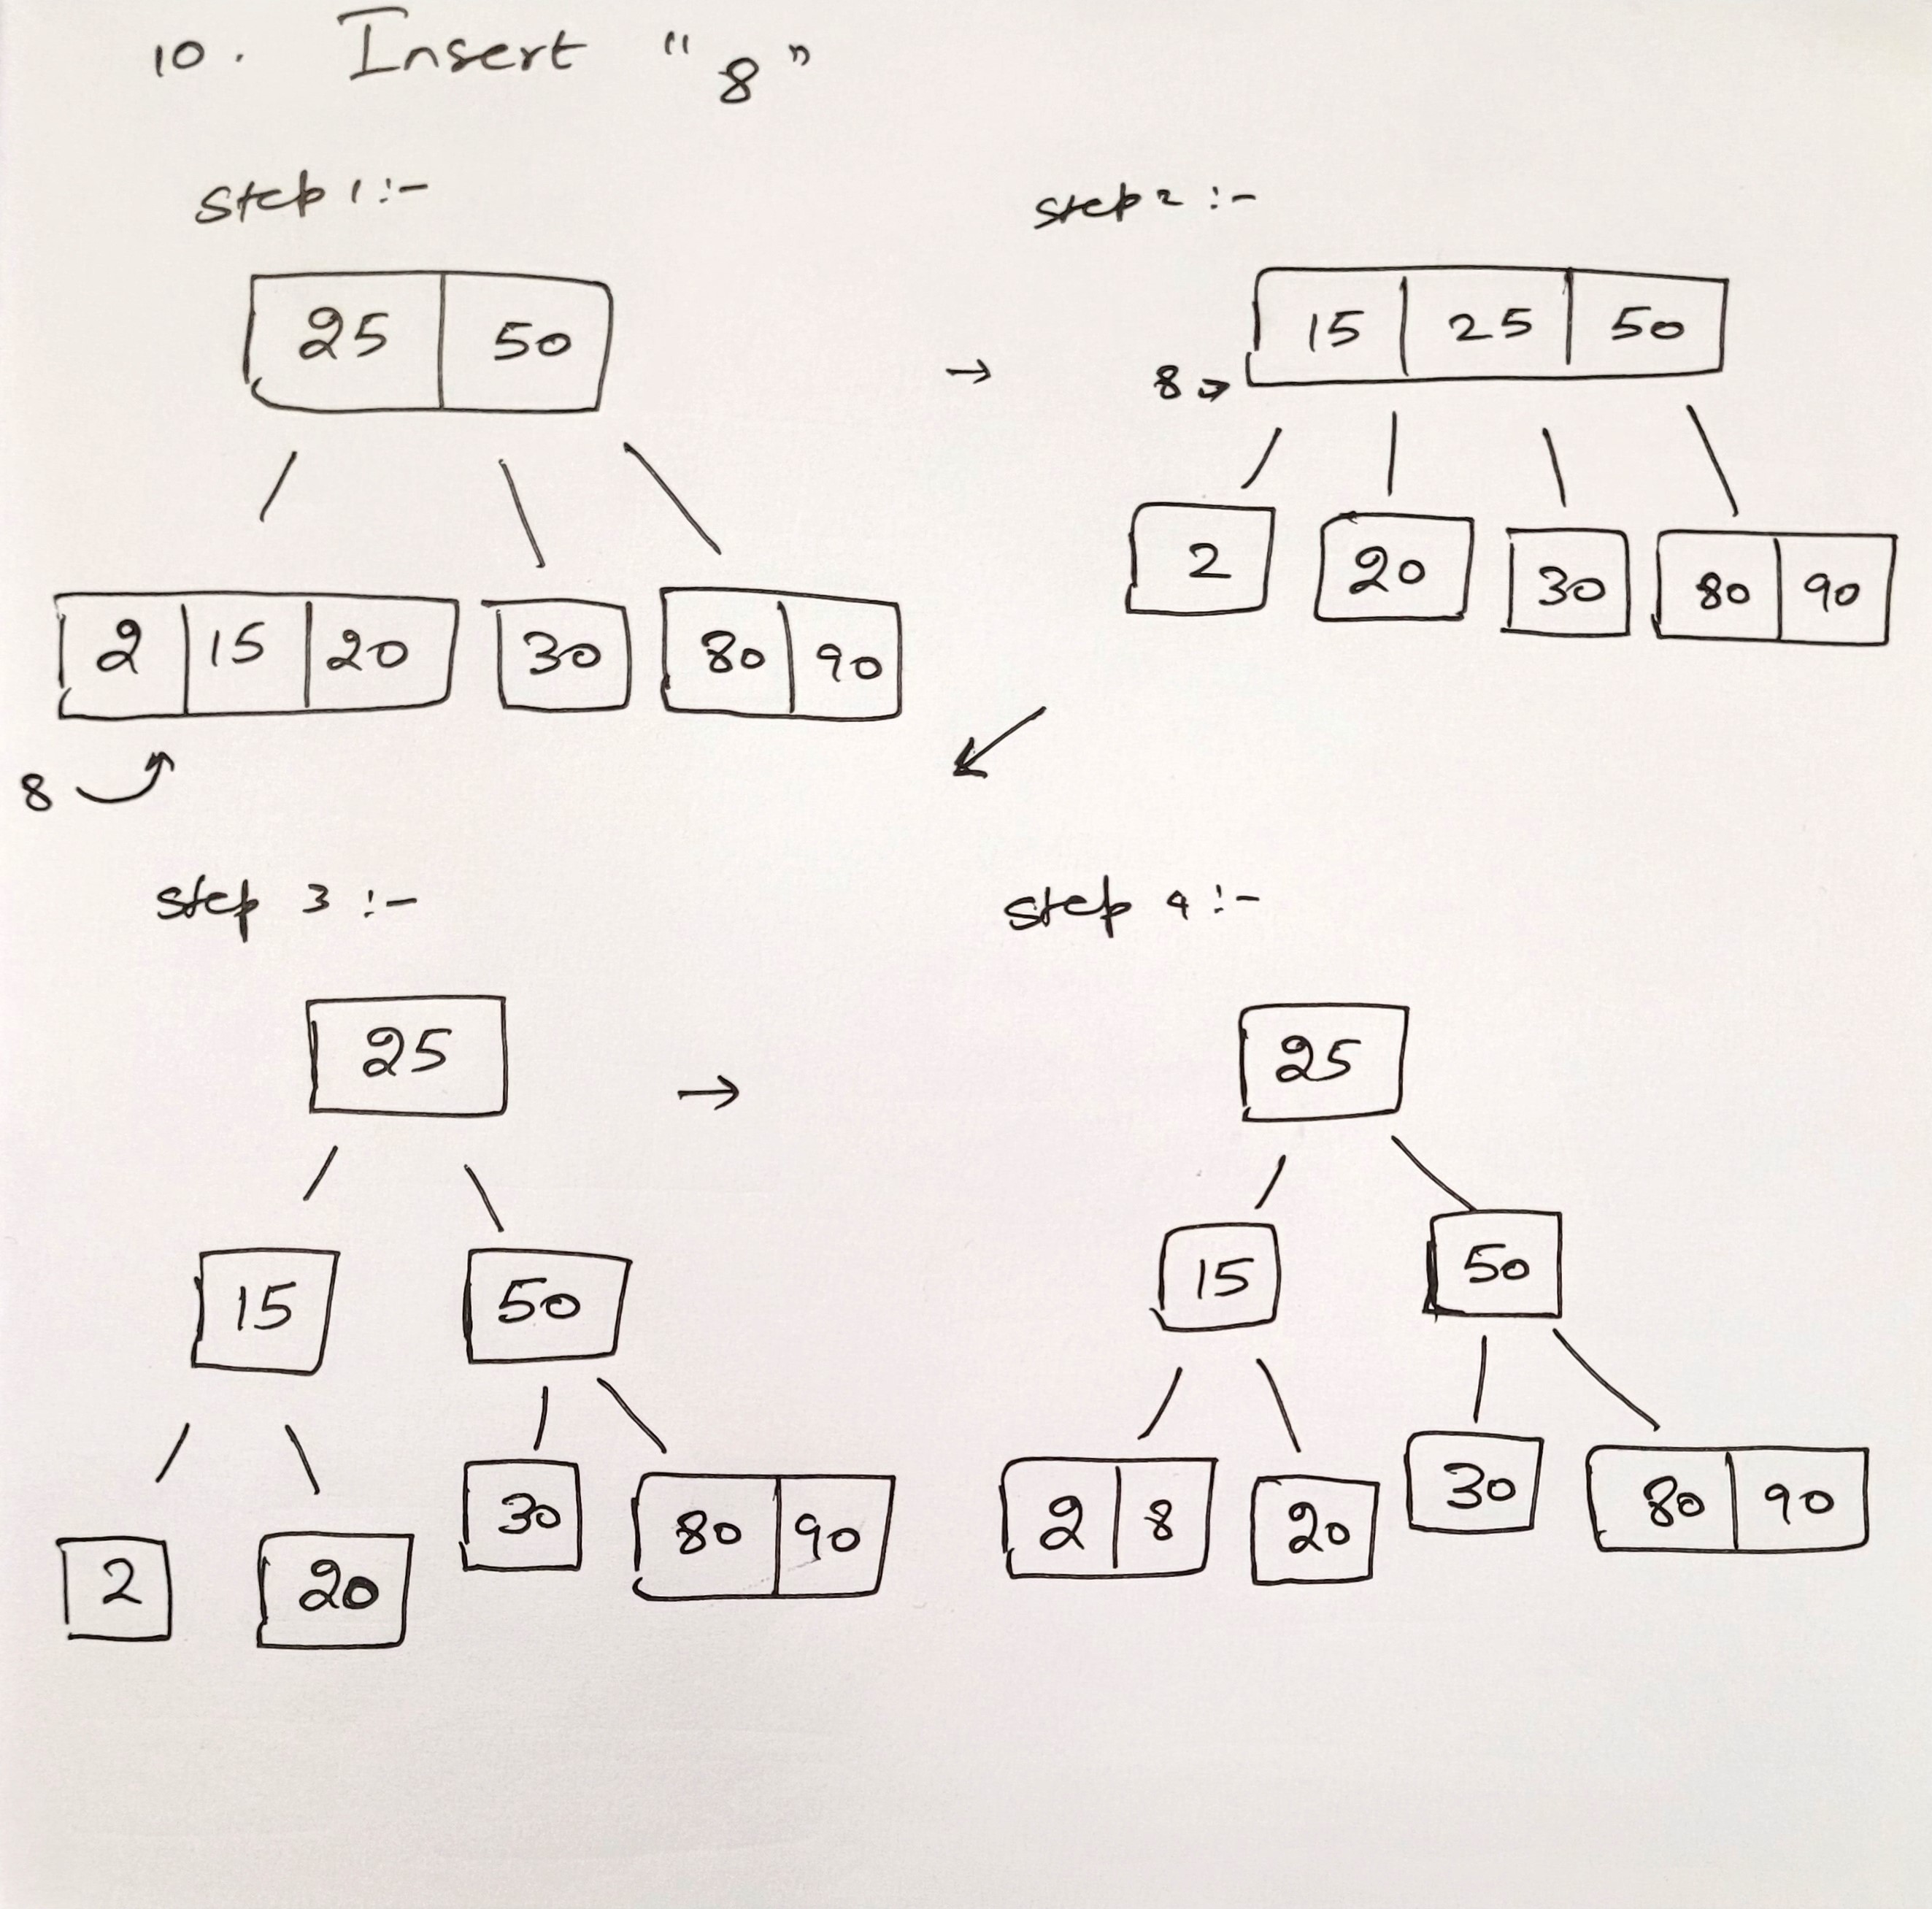 10. Insert "8"
step 1:-
25 50
2 15 20 30 80 90
8
step 2:-
15 25 50
8
2 20 30 80 90
step 3:-
25
15 50
2 20 30 80 90
step 4:-
25
15 50
2 8 20 30 80 90